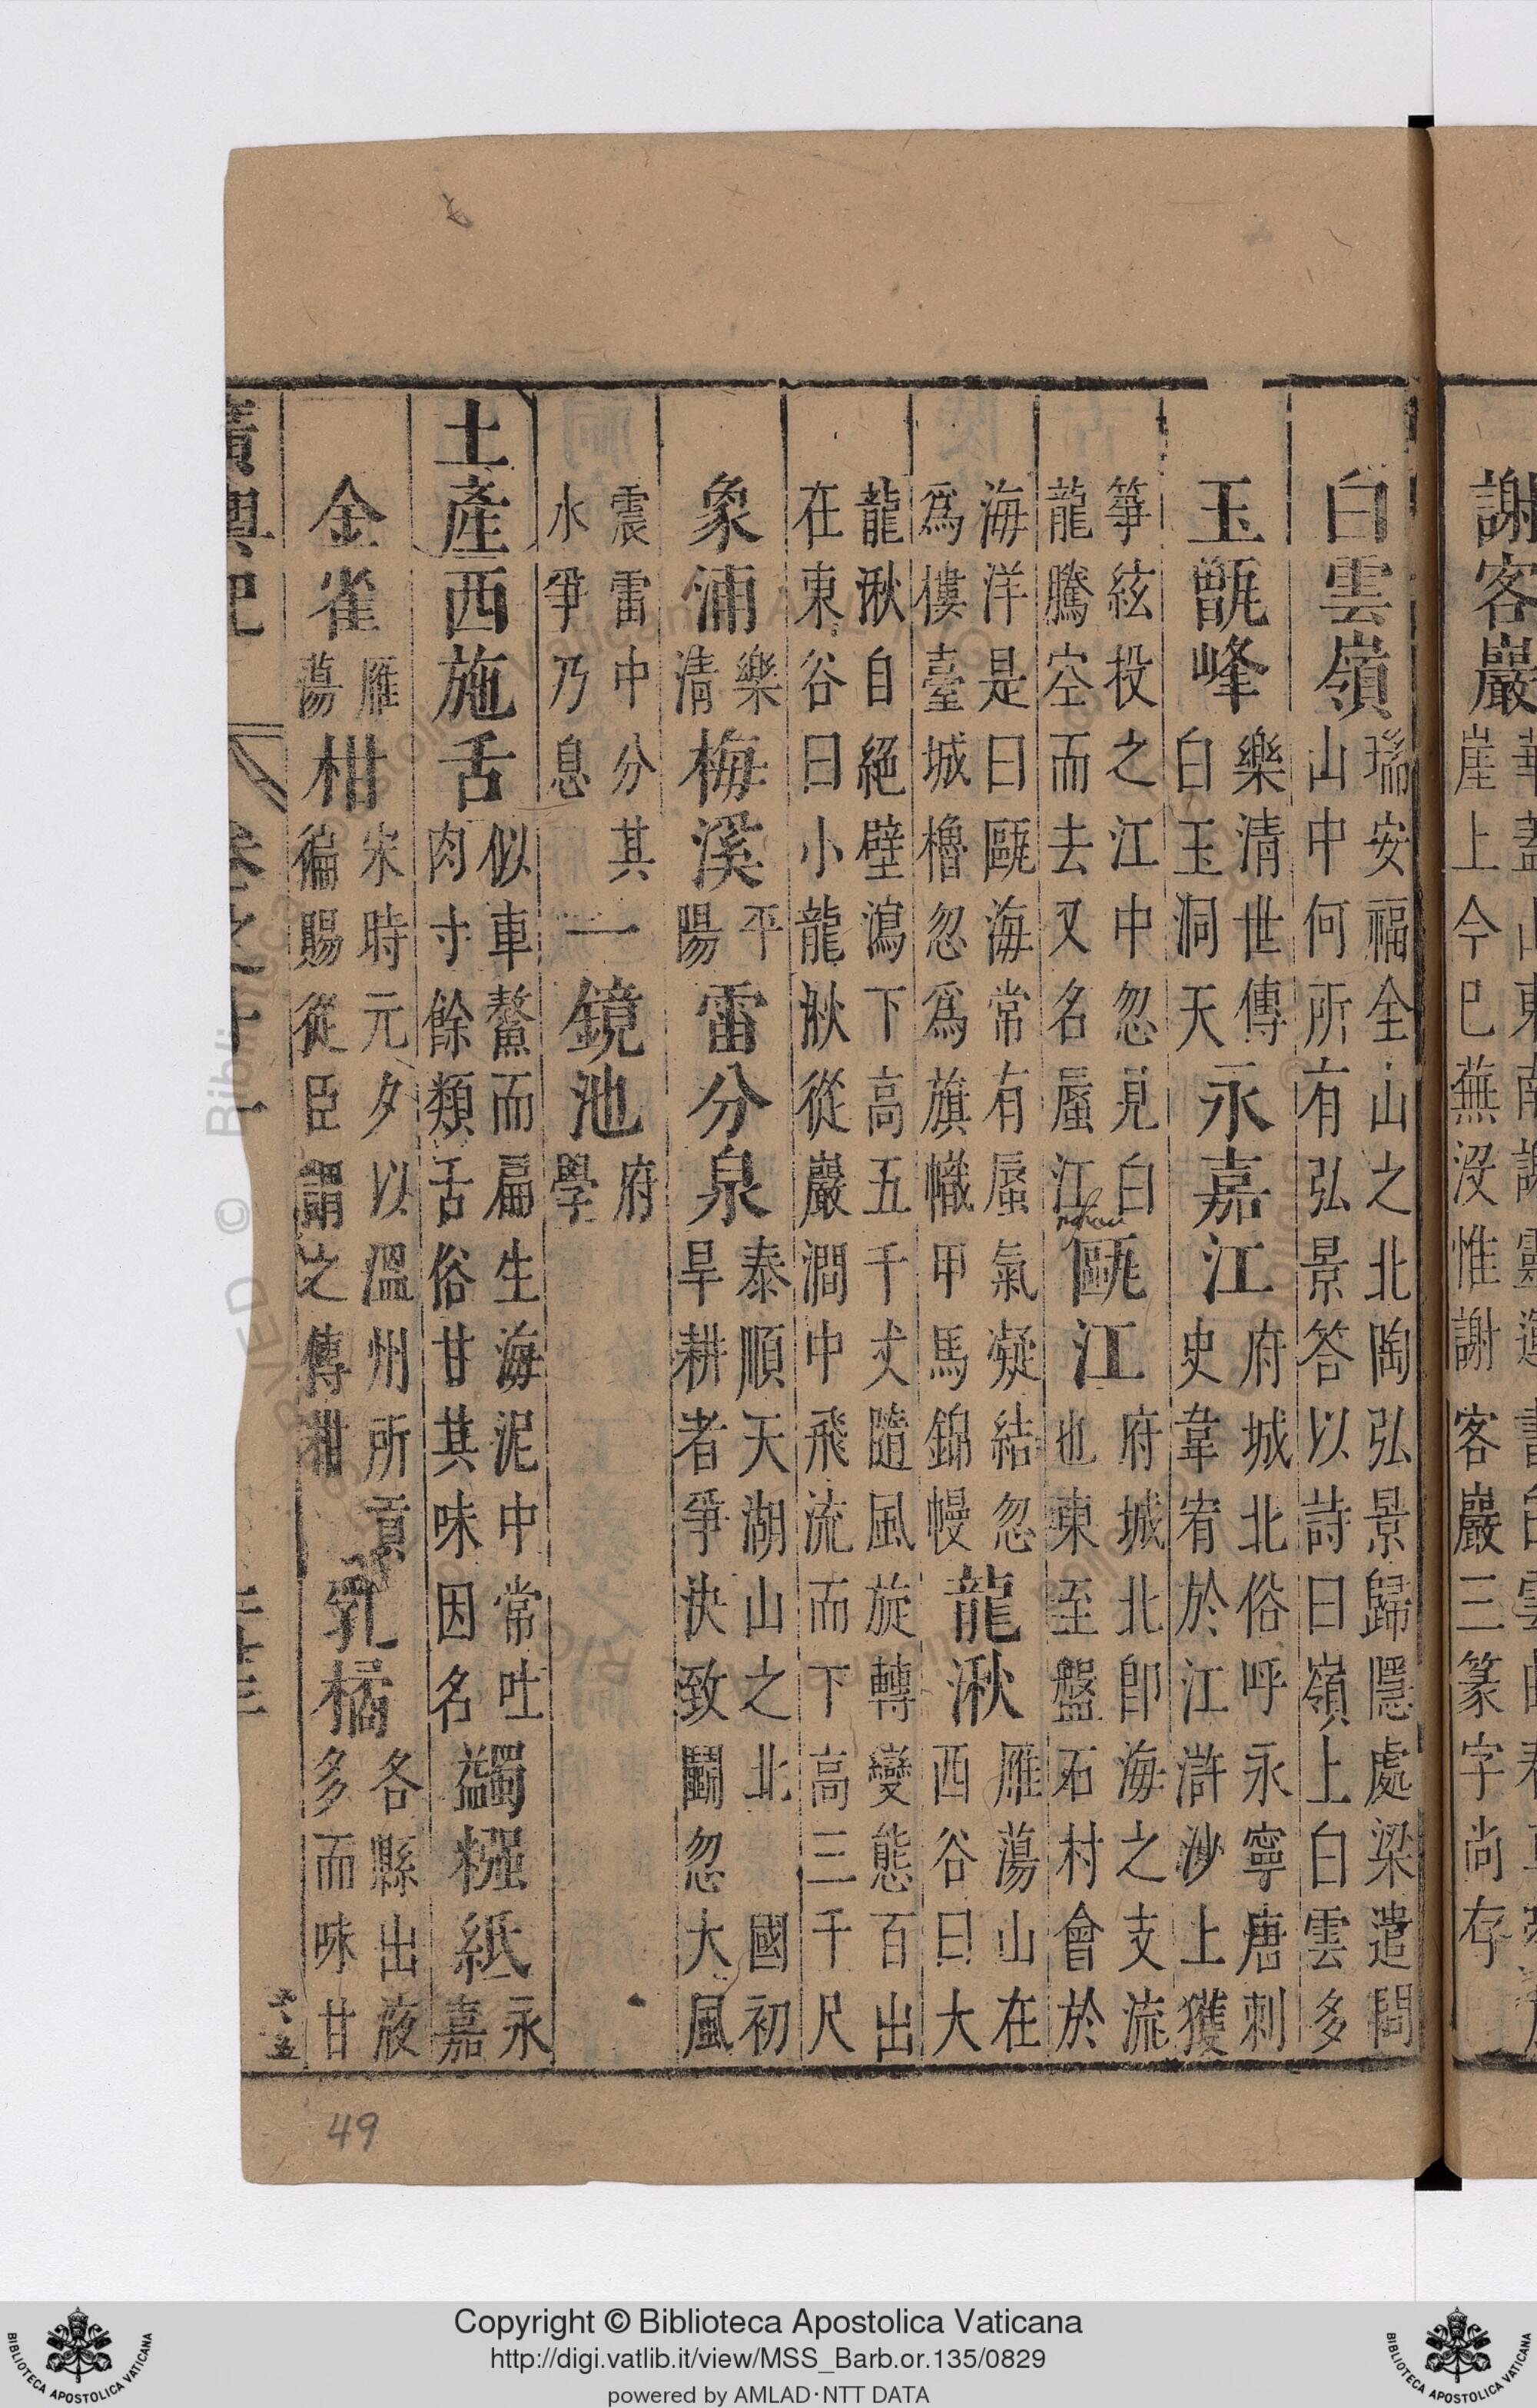 謝客巖崖上今巳蕪没惟謝客巖三篆字尚存
白雲嶺瑞安福全山之北陶弘景歸隱處梁遣問山中何所有弘景答以詩曰嶺上白雲多
玉甑峰樂清世傳白玉洞天永嘉江府城北俗呼永寧唐刺史韋宥於江滸沙上獲
箏絃投之江中忽見白龍騰空而去又名蜃江甌江府城北卽海之支流也東至盤石村會於
海洋是曰甌海常有蜃氣凝結忽爲樓臺城櫓忽爲旗幟甲馬錦幔龍湫雁蕩山在西谷曰大
龍湫自絕壁瀉下高五千丈隨風旋轉變態百出在東谷曰小龍湫從巖澗中飛流而下高三千尺
象浦樂清梅溪平陽雷分泉泰順天湖山之北國初旱耕者爭決致鬭忽大風
震雷中分其水爭乃息一鏡池府學
土產西施舌似車螯而扁生海泥中常吐肉寸餘類舌俗甘其味因名蠲糨紙永嘉
金雀雁蕩柑宋時元夕以溫州所貢徧賜從臣謂之傳柑乳橘各縣出液多而味甘
廣輿記 卷之十一
49
Copyright © Biblioteca Apostolica Vaticana
http://digi.vatlib.it/view/MSS_Barb.or.135/0829
powered by AMLAD·NTT DATA
BIBLIOTECA APOSTOLICA VATICANA
BIBLIOTECA APOSTOLICA VATICANA